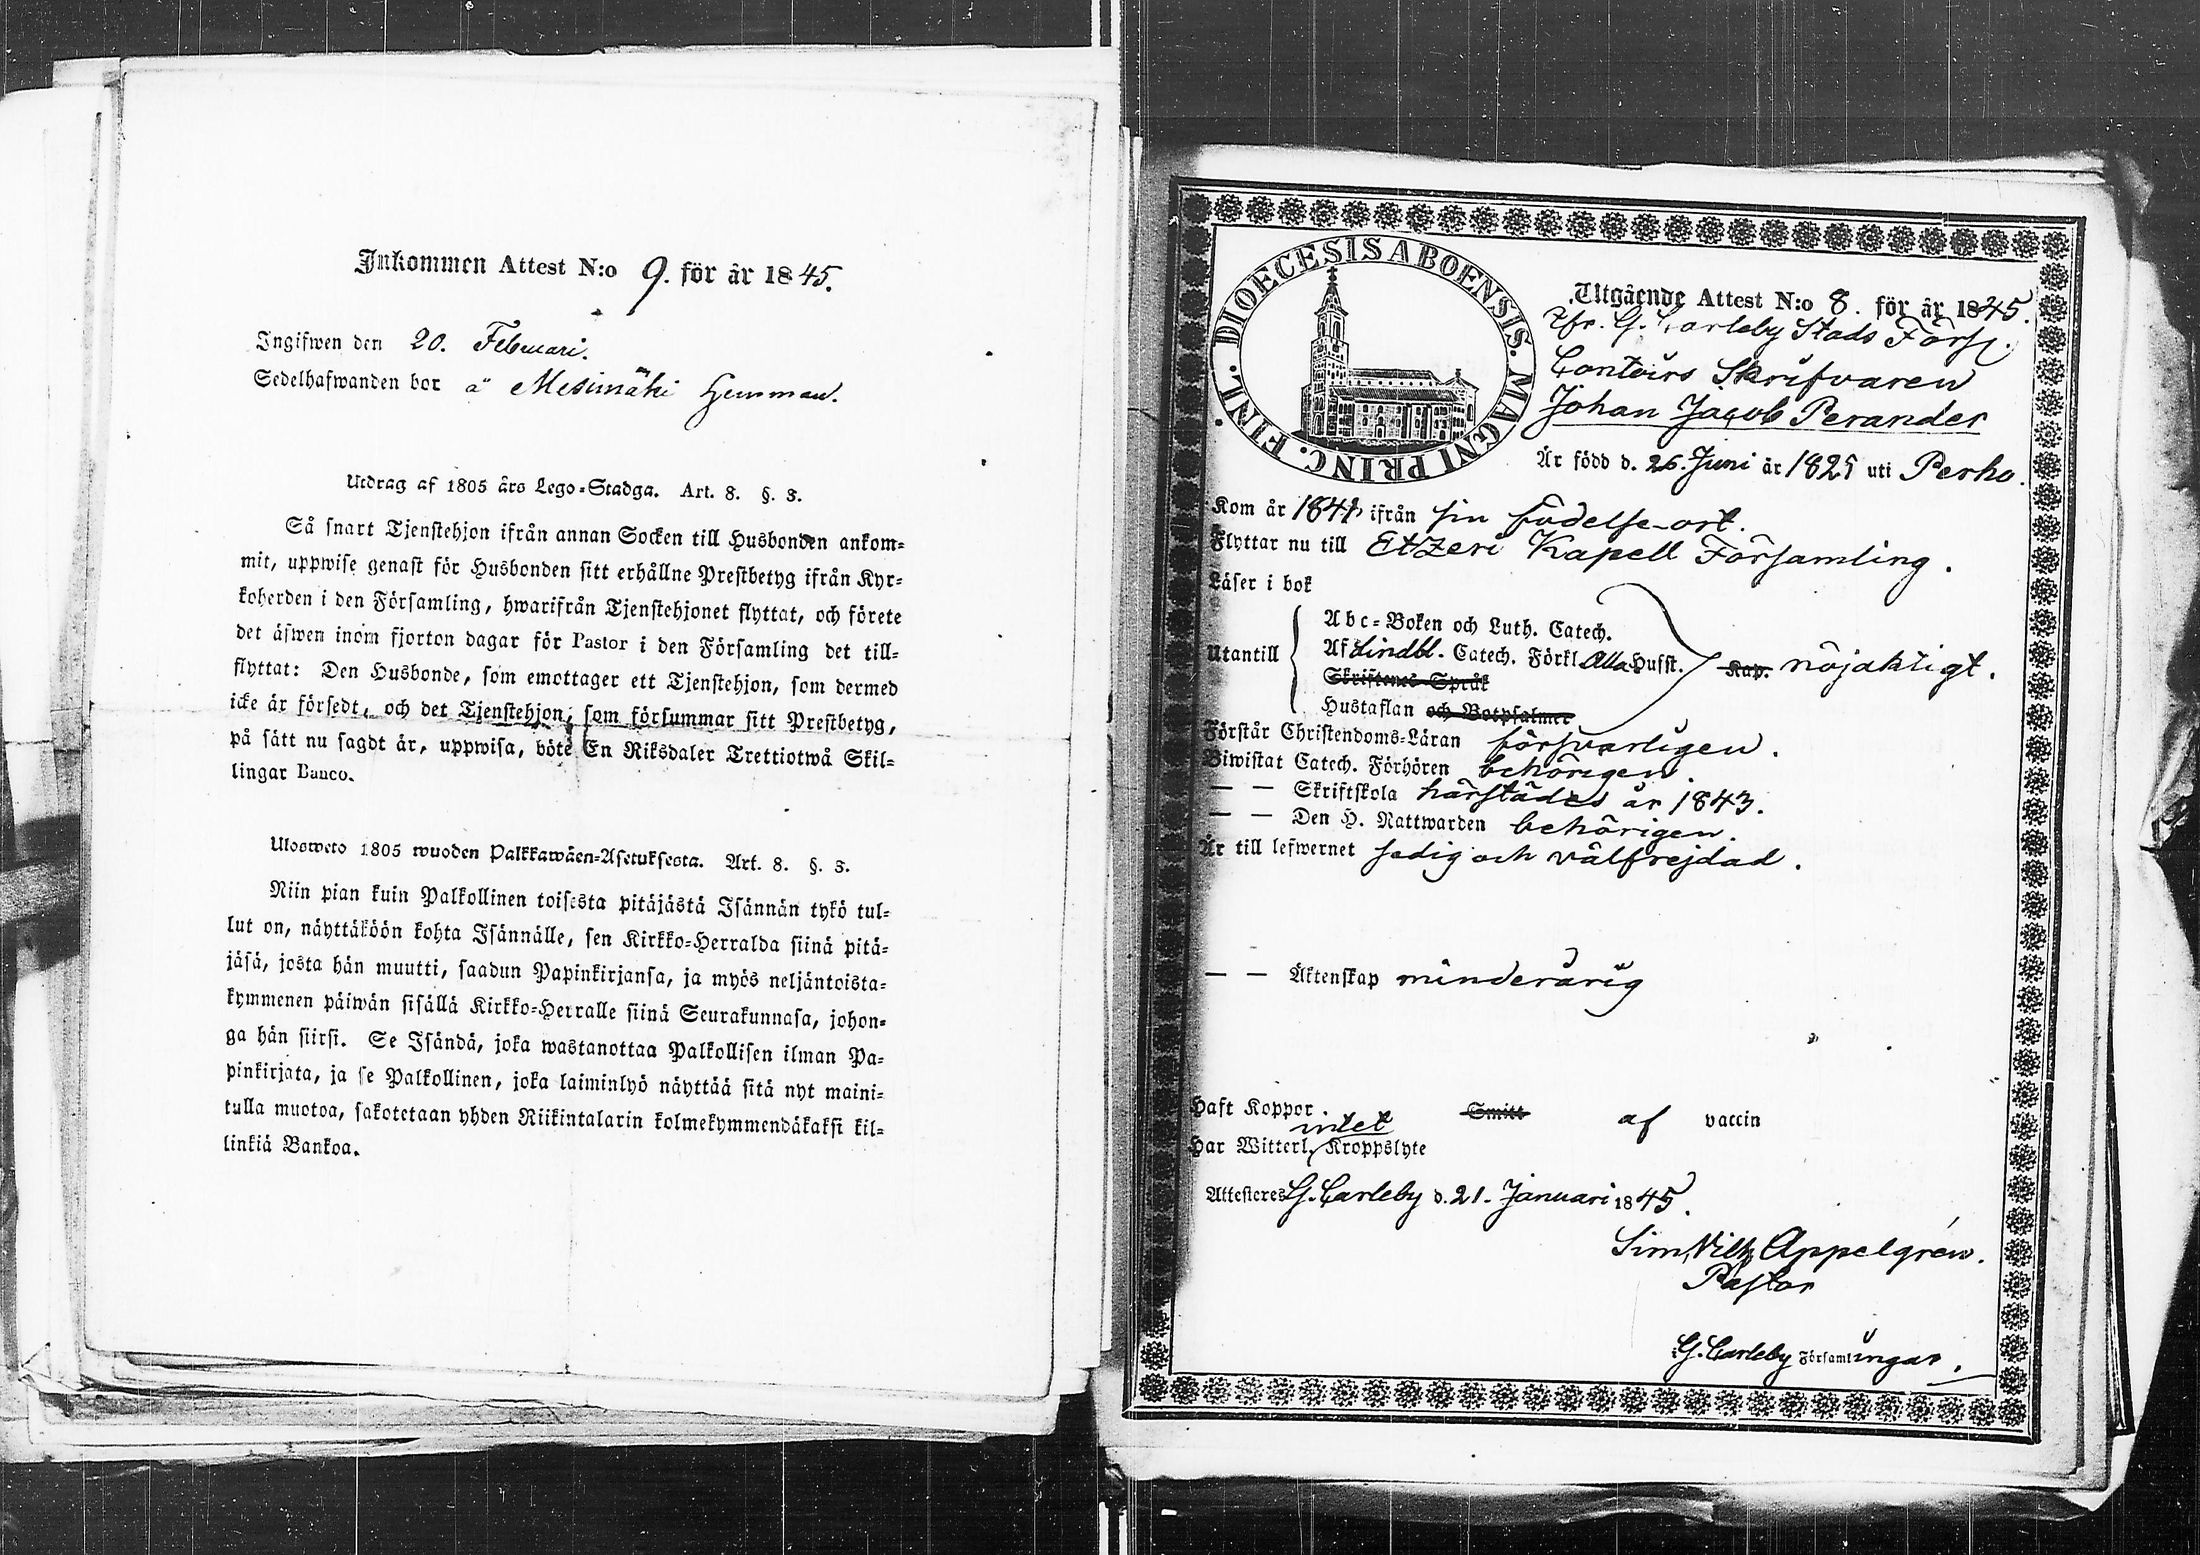 Inkommen Attest N:o 9. för år 1845.
Ingifwen den 20. Februari.
Sedelhafwanden bor å Mesimäki Hemman.
Utdrag af 1805 års Lego-Stadga. Art. 8. §. 3.
Så snart Tjenstehjon ifrån annan Socken till Husbonden ankom-
mit, uppwise genast för Husbonden sitt erhållne Prestbetyg ifrån Kyr-
koherden i den Församling, hwarifrån Tjenstehjonet flyttat, och förete
det äfwen inom fjorton dagar för Pastor i den Församling det till-
flyttat: Den Husbonde, som emottager ett Tjenstehjon, som dermed
icke är försedt, och det Tjenstehjon, som försummar sitt Prestbetyg,
på sätt nu sagdt är, uppwisa, böte En Riksdaler Trettiotwå Skil-
lingar Banco.
Ulosweto 1805 wuoden Palkkawäen-Asetuksesta. Art. 8. §. 3.
Niin pian kuin Palkollinen toisesta pitäjästä Isännän tykö tul-
lut on, näyttäköön kohta Isännälle, sen Kirkko-Herralda siinä pitä-
jäsä, josta hän muutti, saadun Papinkirjansa, ja myös neljäntoista-
kymmenen päiwän sisällä Kirkko-Herralle siinä Seurakunnasa, johon-
ga hän siirsi. Se Isändä, joka wastanottaa Palkollisen ilman Pa-
pinkirjata, ja se Palkollinen, joka laiminlyö näyttää sitä nyt maini-
tulla muotoa, sakotetaan yhden Riikintalarin kolmekymmendäkaksi kil-
linkiä Bankoa.
DIOECESIS ABOENSIS. MAGNI PRINC. FINL.
Utgående Attest N:o 8. för år 1845.
Ifr. G. Carleby Stads Förs.
Contoirs Skrifvaren
Johan Jacob Perander
Är född d. 26. Juni år 1825 uti Perho.
Kom år 1841 ifrån sin födelse-ort.
Flyttar nu till Etzeri Kapell Församling.
Läser i bok
Abc-Boken och Luth. Catech.
Utantill Af Lindbl. Catech. Förkl. Alla Hufst. Kap. nöjaktigt.
Skriftenes Språk
Hustaflan och Botpsalmer
Förstår Christendoms-Läran försvarligen.
Biwistat Catech. Förhören behörigen.
— — Skriftskola härstädes år 1843.
— — Den H. Nattwarden behörigen.
Är till lefwernet sedig och välfrejdad.
— — Äktenskap minderårig
Haft Koppor Smitt af vaccin
intet
Har Witterl. Kroppslyte
Attesteres G. Carleby d. 21. Januari 1845.
Sim. Vilh. Appelgrén.
Pastor
G. Carleby Församlingar.